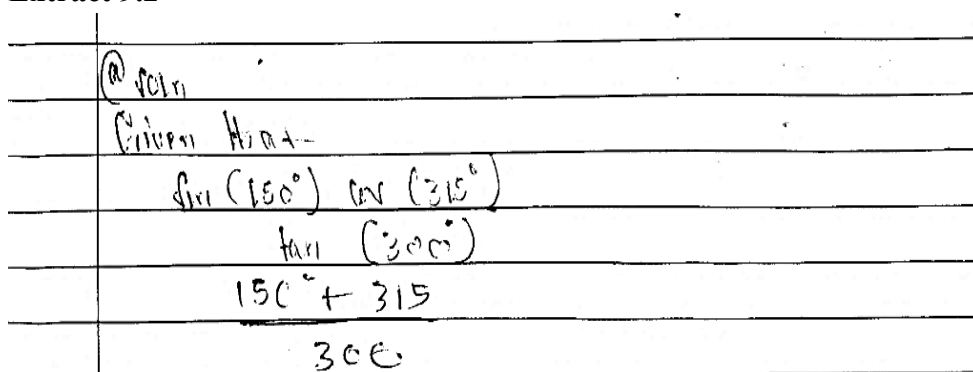 (a) soln
Given that
sin (150°) cos (315°)
tan (300°)
150° + 315
300